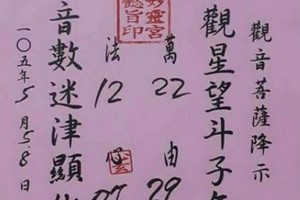 觀音菩薩降示
觀星望斗子
萬
22
由
29
法
12
靈宮
旨印
音數迷津顯
一〇五年5月5.8日